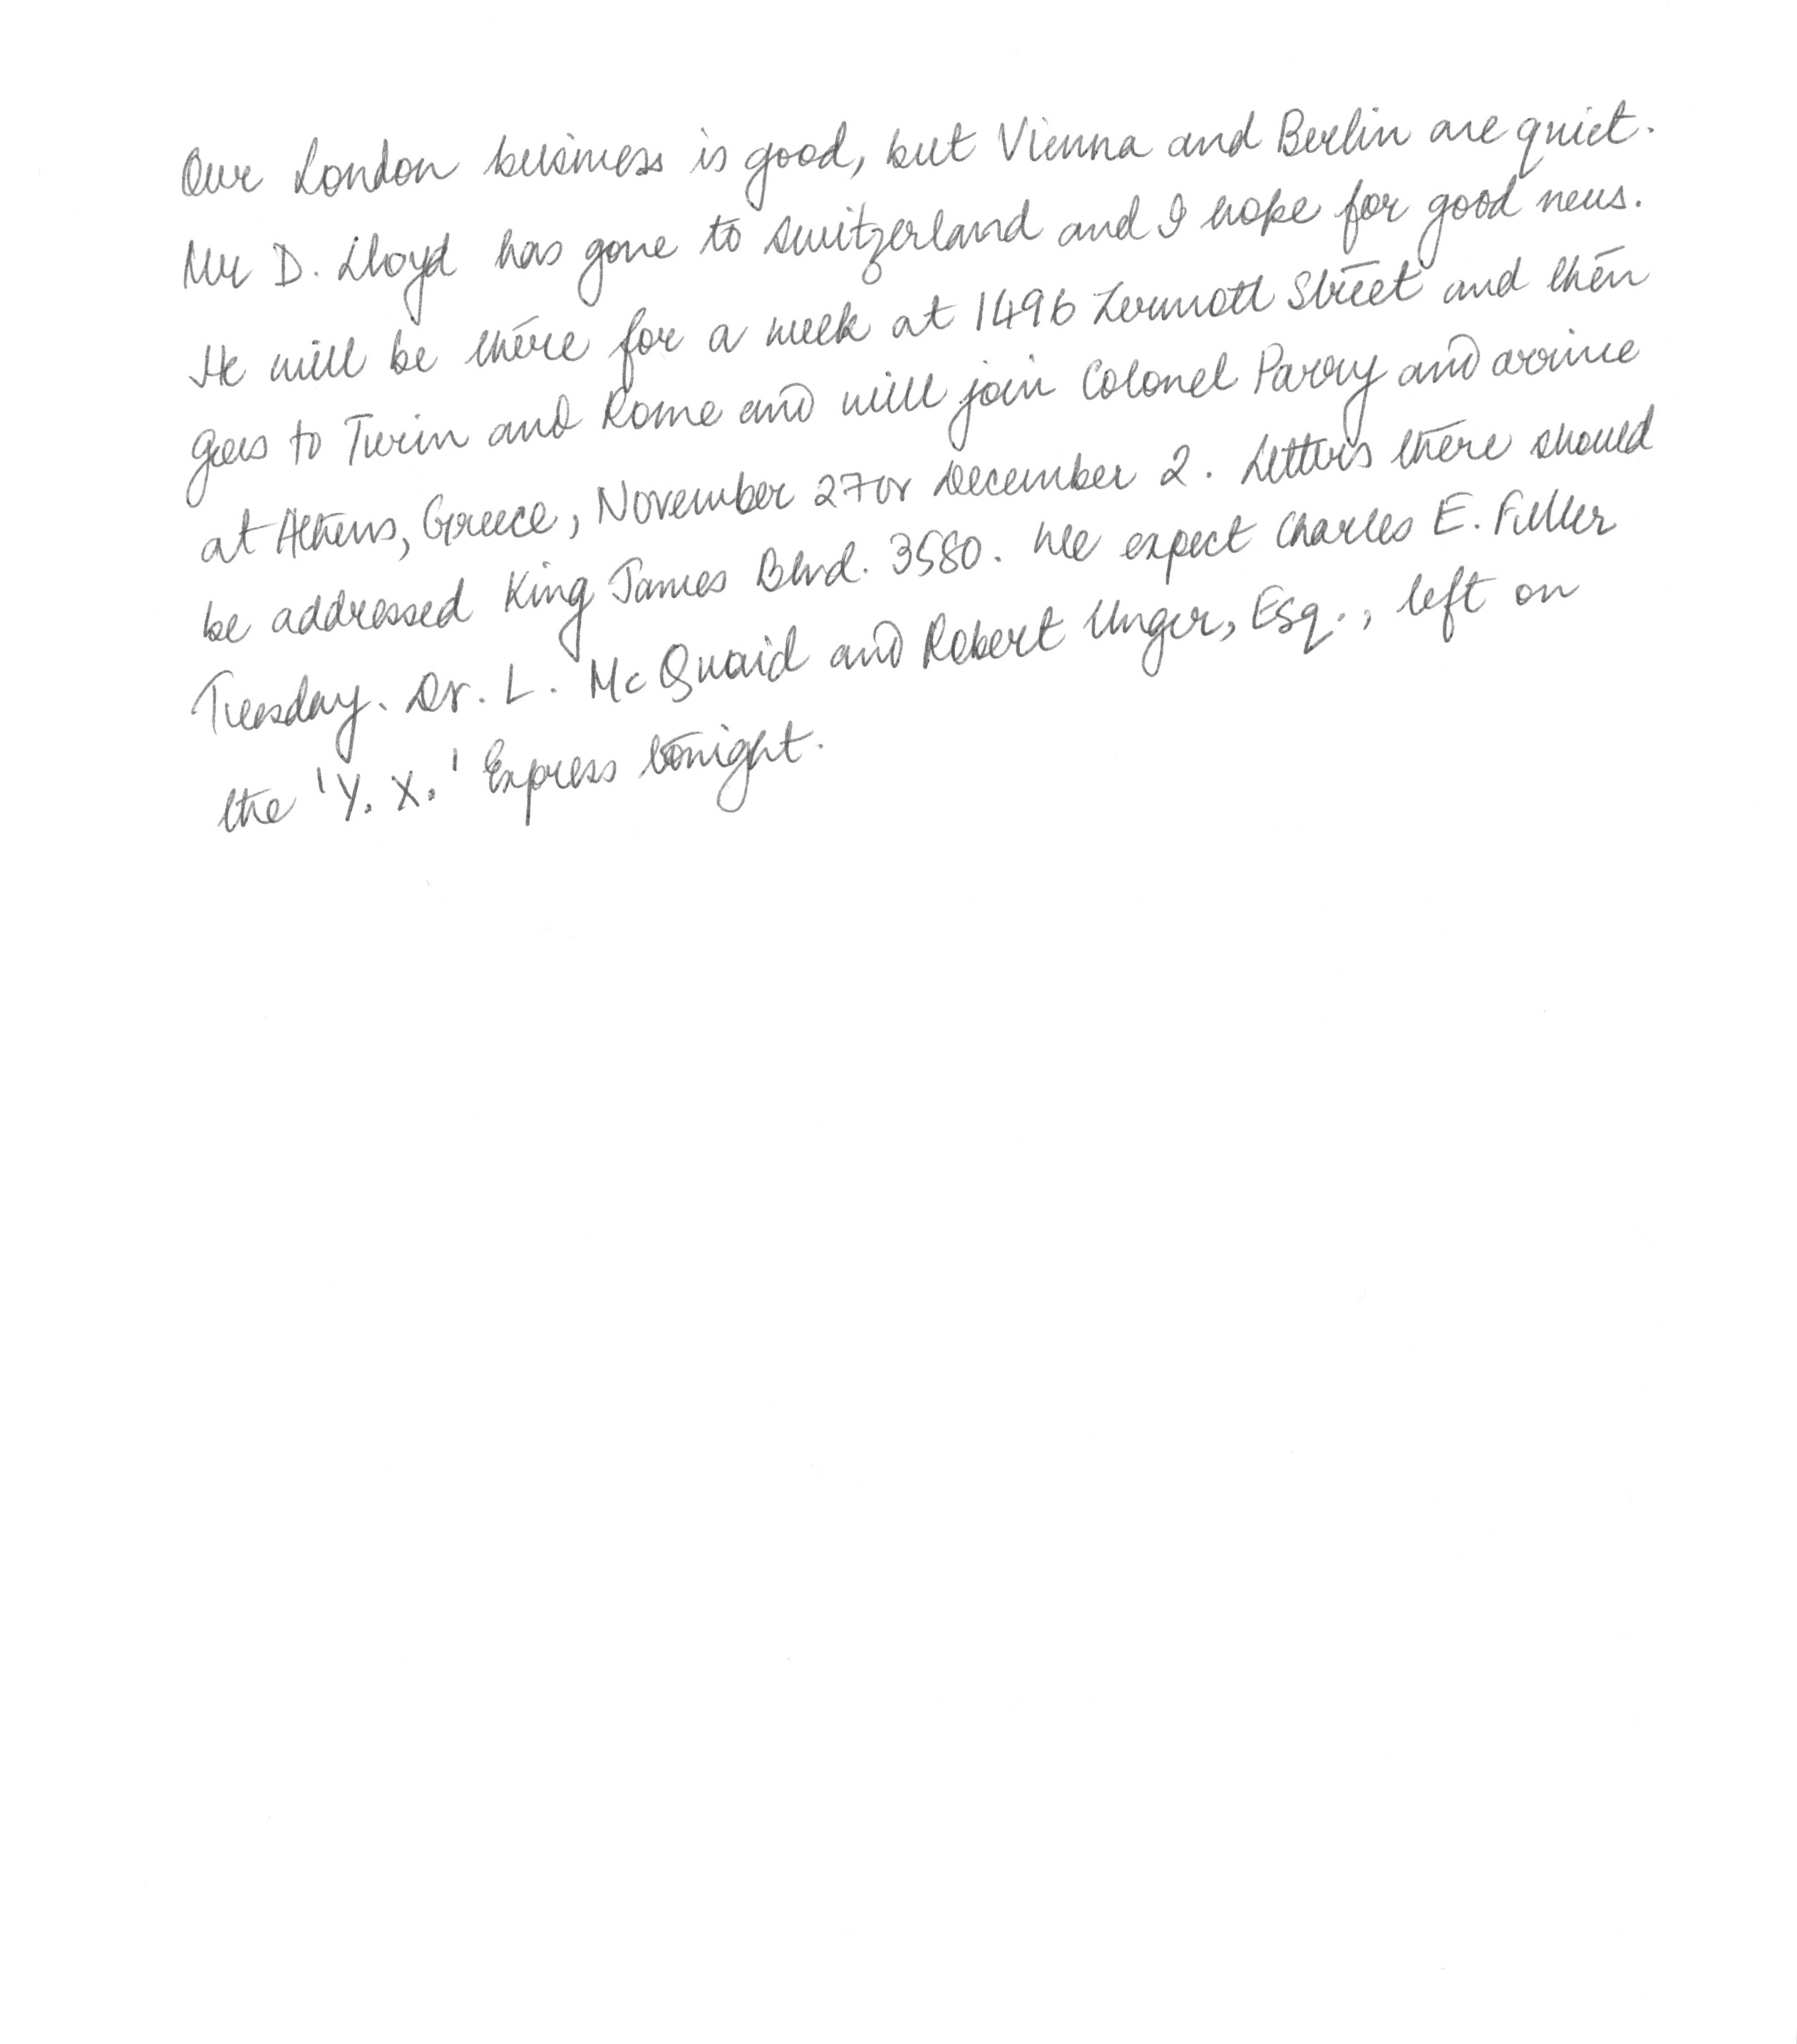 Our London business is good, but Vienna and Berlin are quiet.
Mr D. Lloyd has gone to Switzerland and I hope for good news.
He will be there for a week at 1496 Zermott Street and then
goes to Turin and Rome and will join Colonel Parry and arrive
at Athens, Greece, November 27 or December 2. Letters there should
be addressed King James Blvd. 3580. We expect Charles E. Fuller
Tuesday. Dr. L. McQuaid and Robert Unger, Esq., left on
the 'Y. X.' Express tonight.